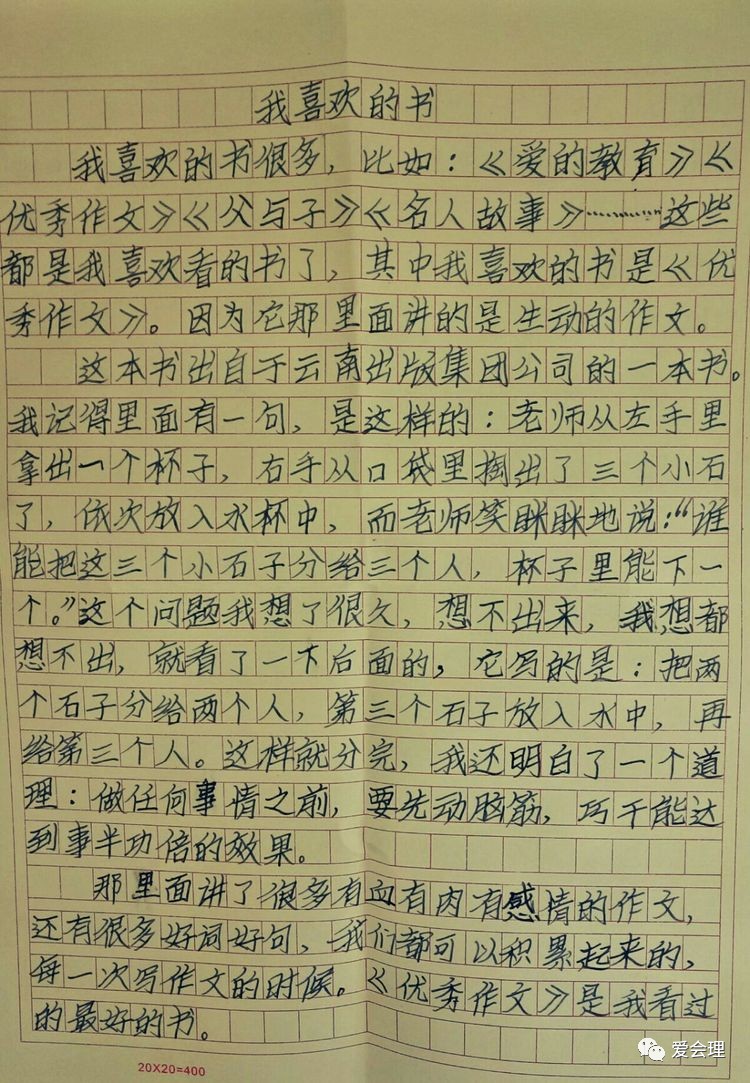 我喜欢的书
我喜欢的书很多，比如：《爱的教育》《
优秀作文》《父与子》《名人故事》………这些
都是我喜欢看的书了，其中我喜欢的书是《优
秀作文》。因为它那里面讲的是生动的作文。
这本书出自于云南出版集团公司的一本书。
我记得里面有一句，是这样的：老师从左手里
拿出一个杯子，右手从口袋里掏出了三个小石
了，依次放入水杯中，而老师笑眯眯地说：“谁
能把这三个小石子分给三个人，杯子里能下一
个。”这个问题我想了很久，想不出来，我想都
想不出，就看了一下后面的，它写的是：把两
个石子分给两个人，第三个石子放入水中，再
给第三个人。这样就分完，我还明白了一个道
理：做任何事情之前，要先动脑筋，巧干能达
到事半功倍的效果。
那里面讲了很多有血有肉有感情的作文，
还有很多好词好句，我们都可以积累起来的，
每一次写作文的时候。《优秀作文》是我看过
的最好的书。
20X20=400
爱会理